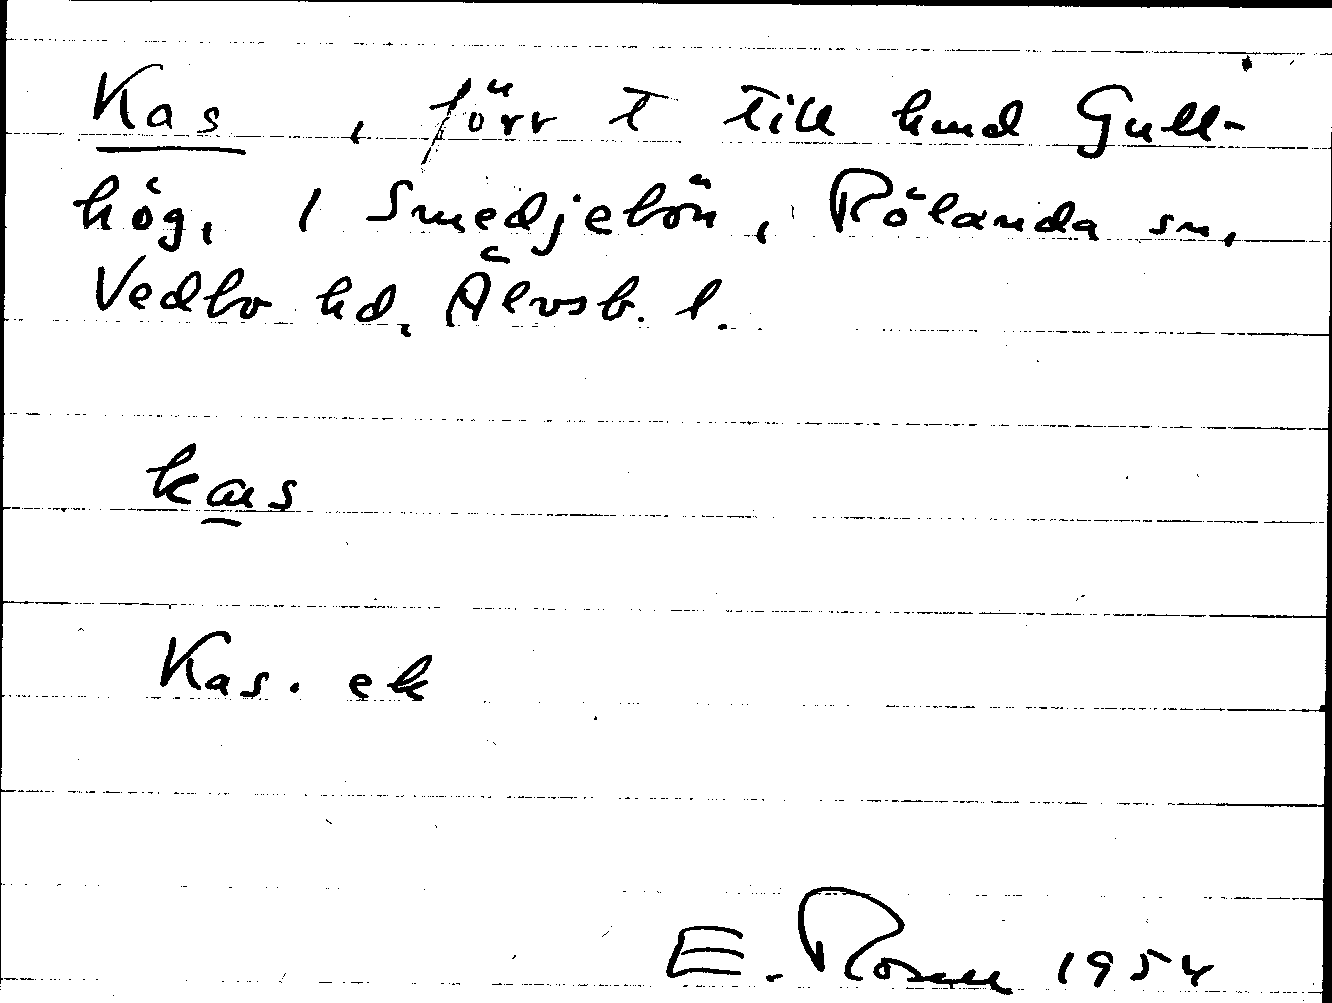 Kas, förr t till hmd Gull-
hög, 1 Smedjebön, Rölanda sn,
Vedbo hd, Älvsb. l.
kas
Kas. ek
E. Rosen 1954